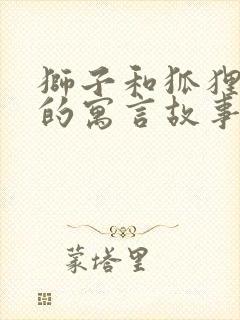 獅子和狐狸
的寓言故事
蒙塔里